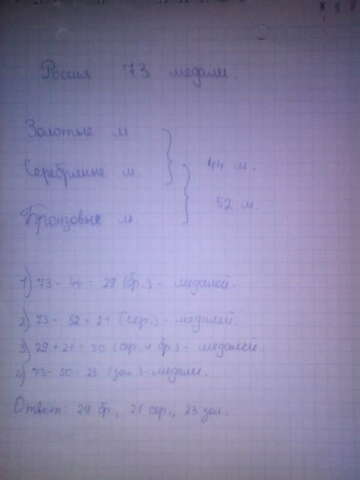 Россия 73 медали.
Золотые м
Серебряные м. 44 м.
Бронзовые м. 52 м.
1) 73 - 44 = 29 (бр.) - медалей.
2) 73 - 52 = 21 (сер.) - медалей.
3) 29 + 21 = 50 (сер. и бр.) - медалей.
4) 73 - 50 = 23 (зол.) - медали.
Ответ: 29 бр., 21 сер., 23 зол.